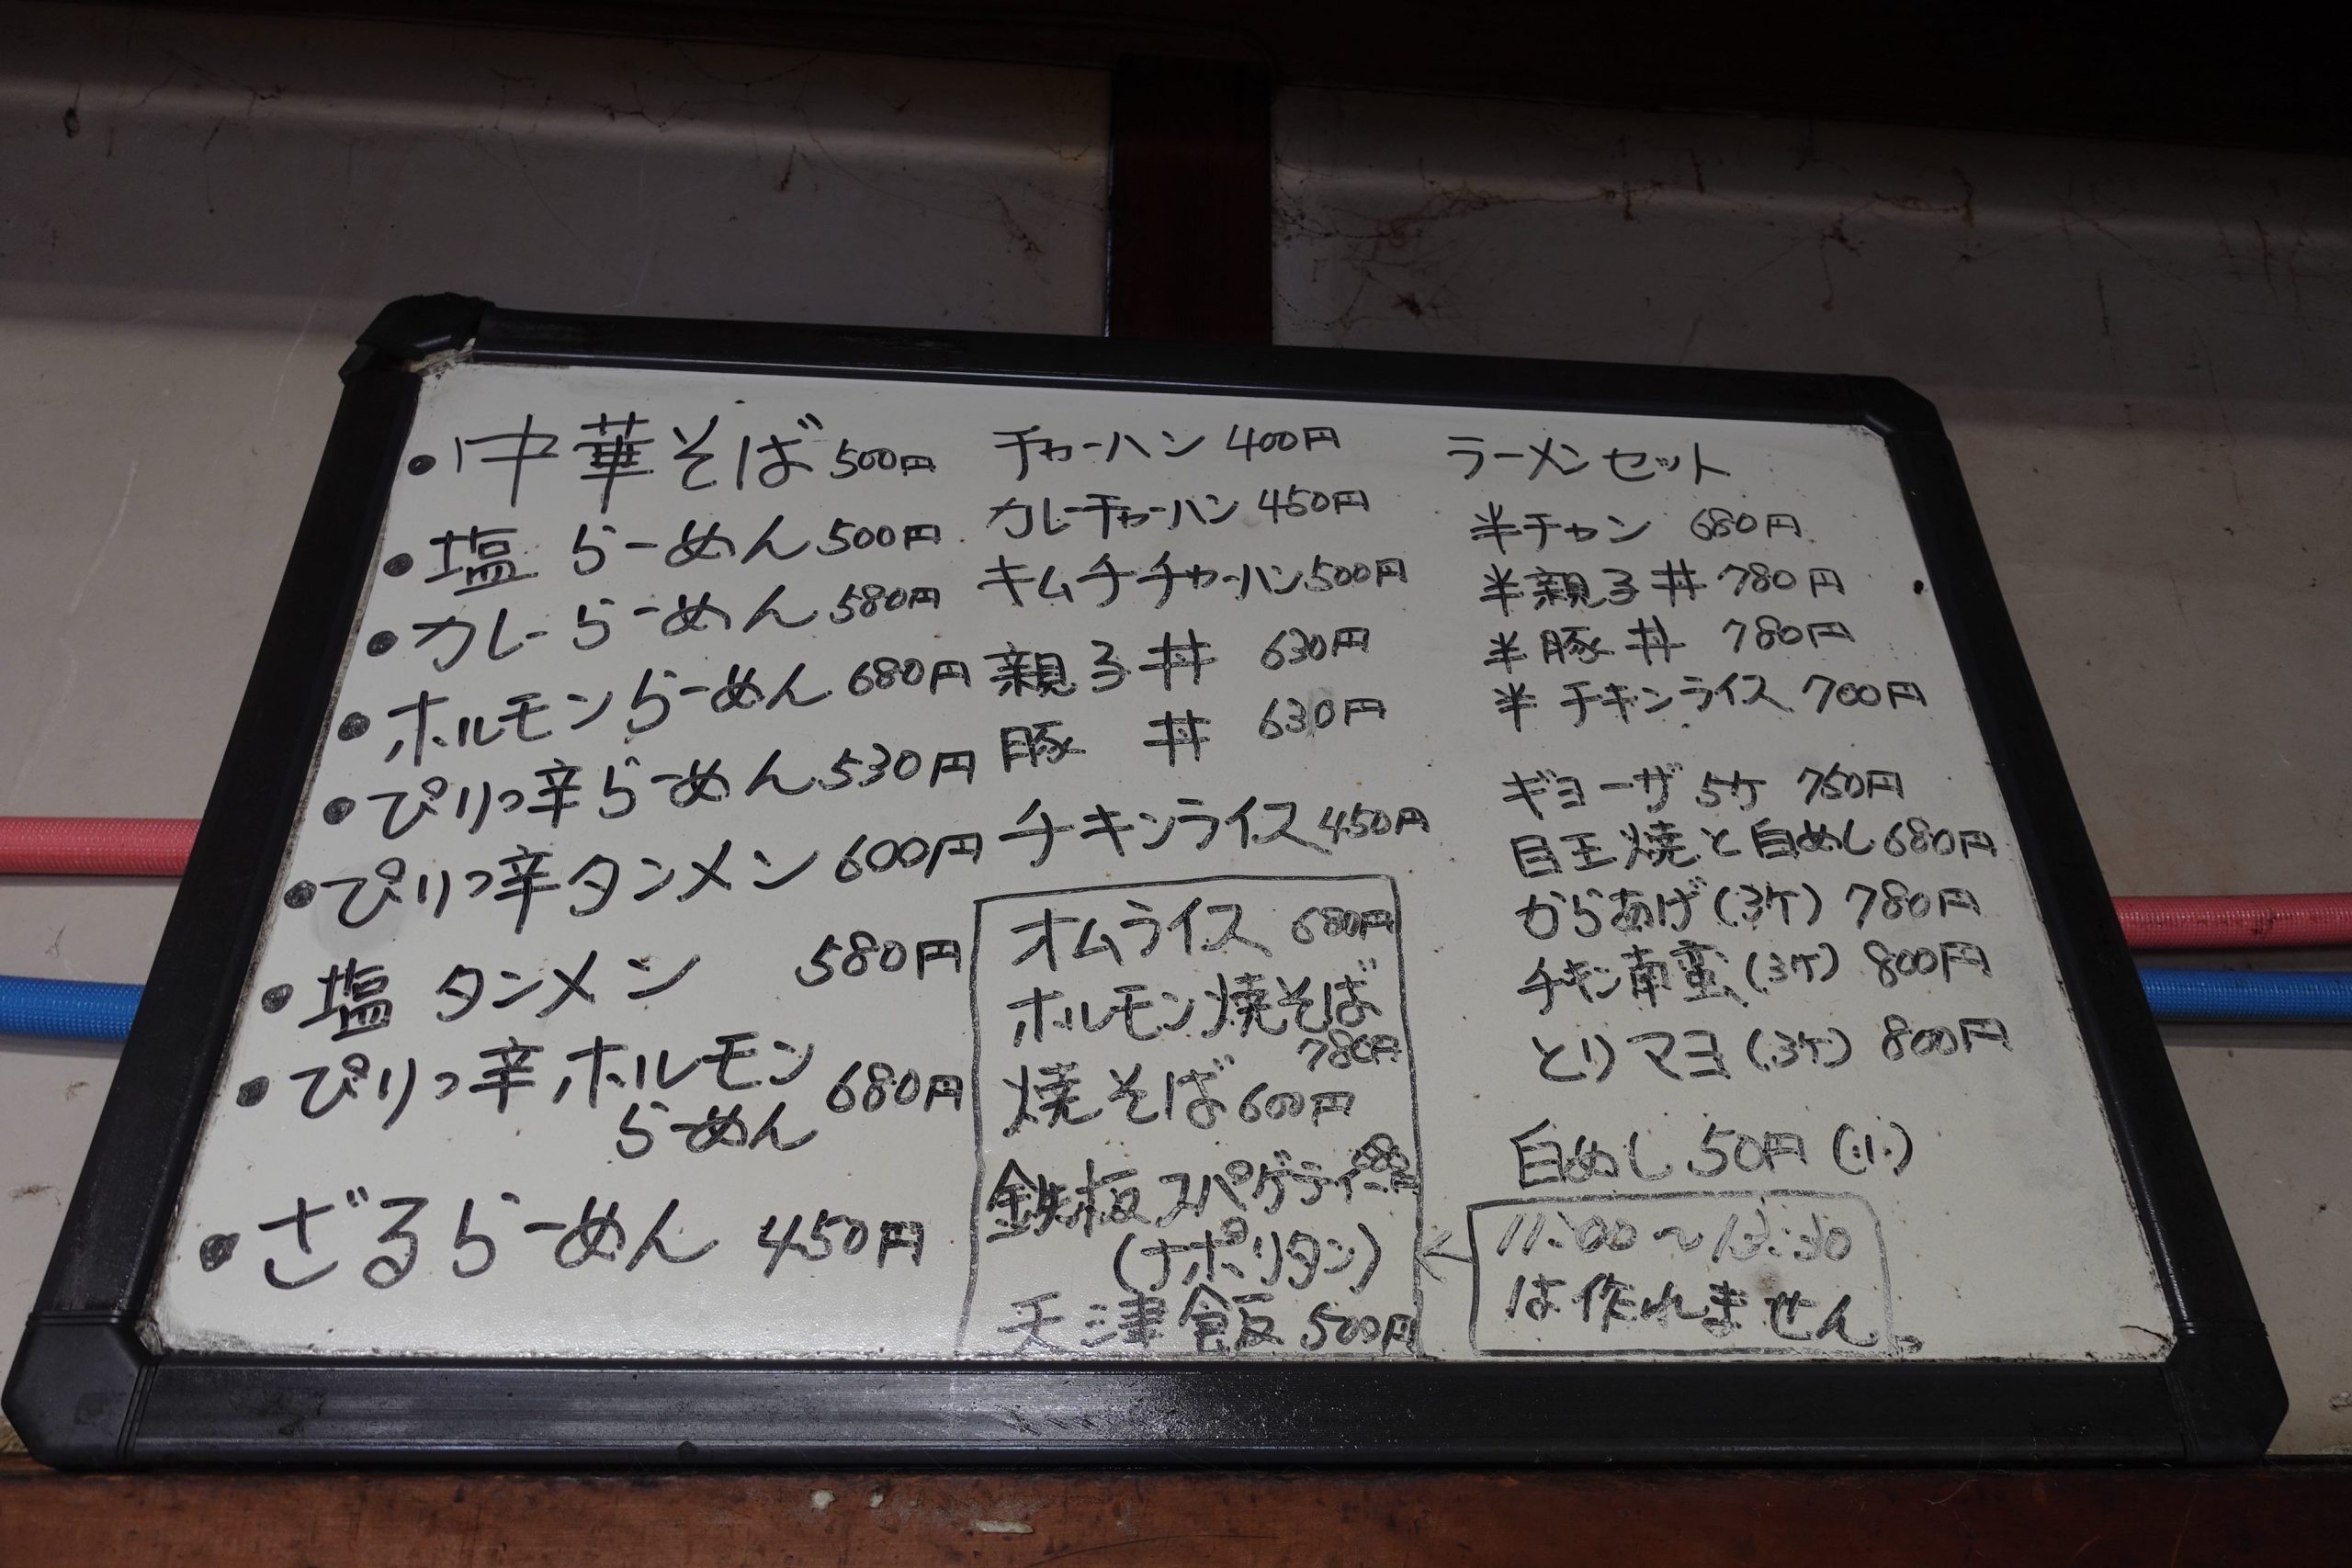 ・中華そば 500円
・塩らーめん 500円
・カレーらーめん 580円
・ホルモンらーめん 680円
・ぴりっ辛らーめん 530円
・ぴりっ辛タンメン 600円
・塩 タンメン 580円
・ぴりっ辛ホルモン
らーめん 680円
・ざるらーめん 450円
チャーハン 400円
カレーチャーハン 450円
キムチチャーハン 500円
親子丼 630円
豚 丼 630円
チキンライス 450円
オムライス 680円
ホルモン焼そば
780円
焼そば 600円
鉄板スパゲティー 680円
(ナポリタン)
天津飯 500円
ラーメンセット
半チャン 680円
半親子丼 780円
半豚丼 780円
半チキンライス 700円
ギョーザ 5ケ 750円
目玉焼と白めし 680円
からあげ(3ケ) 780円
チキン南蛮(3ケ) 800円
とりマヨ(3ケ) 800円
白めし 50円 (小)
← 11:00〜13:30
は作れません。